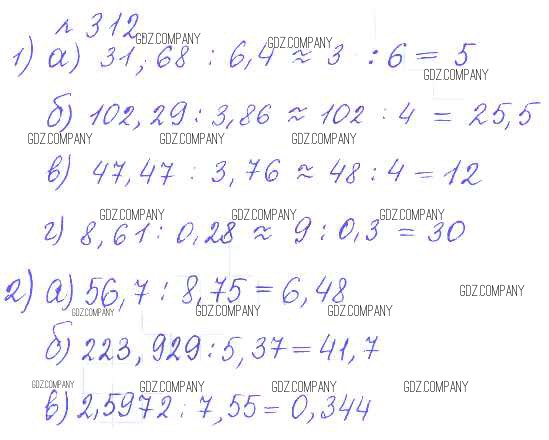 № 312
GDZ.COMPANY GDZ.COMPANY
1) а) 31,68 : 6,4 ≈ 3 : 6 = 5
GDZ.COMPANY
б) 102,29 : 3,86 ≈ 102 : 4 = 25,5
GDZ.COMPANY GDZ.COMPANY GDZ.COMPANY
в) 47,47 : 3,76 ≈ 48 : 4 = 12
GDZ.COMPANY GDZ.COMPANY GDZ.COMPANY
г) 8,61 : 0,28 ≈ 9 : 0,3 = 30
2) а) 56,7 : 8,75 = 6,48
GDZ.COMPANY
GDZ.COMPANY GDZ.COMPANY GDZ.COMPANY
б) 223,929 : 5,37 = 41,7
GDZ.COMPANY GDZ.COMPANY GDZ.COMPANY GDZ.COMPANY
в) 2,5972 : 7,55 = 0,344